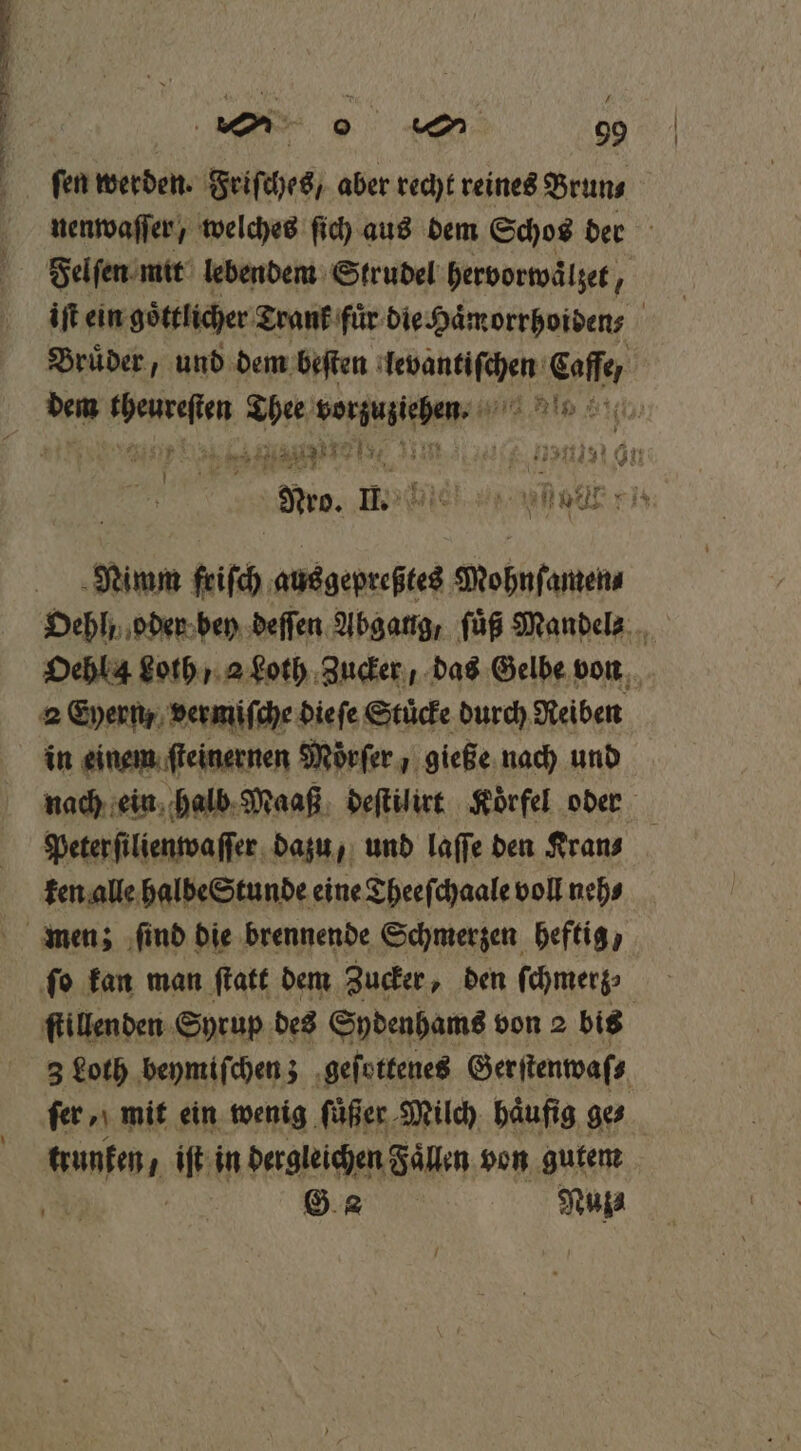 o 99
ſen werden. Friſches, aber recht reines Brun⸗
nenwaſſer, welches ſich aus dem Schos der
Felſen mit lebendem Strudel hervorwaͤlzet,
iſt ein goͤttlicher Trank fuͤr die Haͤmorrhoiden⸗
Bruͤder, und dem beſten levantiſchen Caffe,
dem theureſten Thee vorzuziehen.
Nro. II.
Nimm friſch ausgepreßtes Mohnſamen⸗
Oehl, oder bey deſſen Abgang, ſuͤß Mandel⸗
Oehl 4 Loth, 2 Loth Zucker, das Gelbe von
2 Eyern, vermiſche dieſe Stuͤcke durch Reiben
in einem ſteinernen Moͤrſer, gieße nach und
nach ein halb Maaß deſtilirt Koͤrfel oder
Peterſilienwaſſer dazu, und laſſe den Kran⸗
ken alle halbe Stunde eine Theeſchaale voll neh⸗
men; ſind die brennende Schmerzen heftig,
ſo kan man ſtatt dem Zucker, den ſchmerz⸗
ſtillenden Syrup des Sydenhams von 2 bis
3 Loth beymiſchen; geſottenes Gerſtenwaſ⸗
ſer, mit ein wenig ſuͤßer Milch haͤufig ge⸗
trunken, iſt in dergleichen Faͤllen von gutem
G 2 Nuz⸗